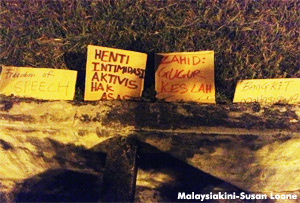 freedom of
SPEECH
HENTI
INTIMIDASI
AKTIVIS
HAK
ASASI
ZAHID:
GUGUR
KES LAH
Malaysiakini-Susan Loone